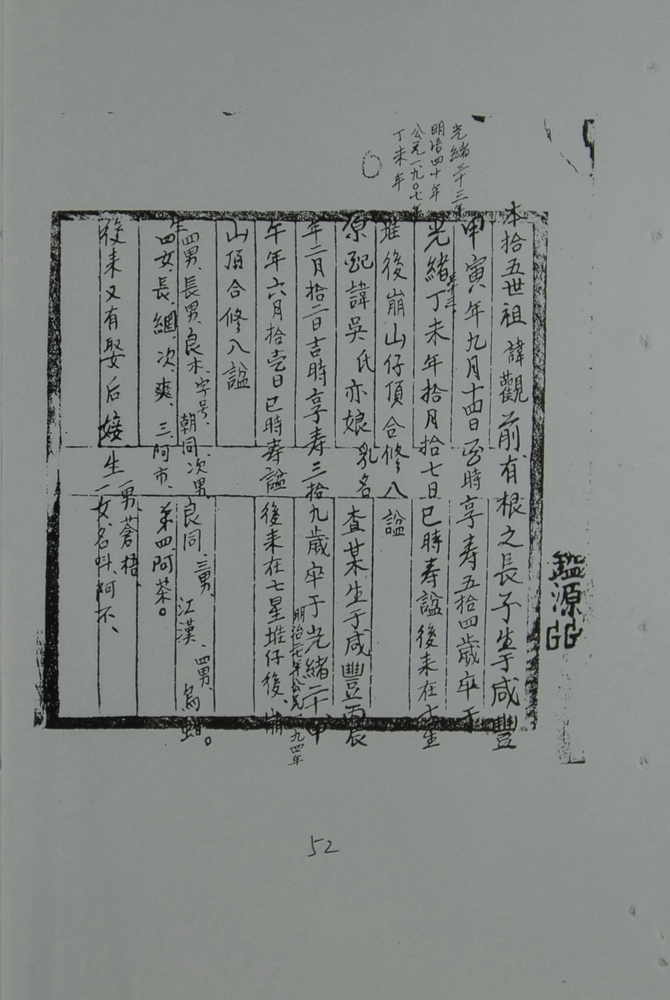 光緒三十三年
明治四十年
公元一九〇七年
丁未年
本拾五世祖諱觀前有根之長子生于咸豐
甲寅年九月十四日 時享寿五拾四歲卒于
光緒丁未年拾月拾七日巳時寿諡後来在七星
堆後崩山仔頂合修八諡
原配諱吳氏亦娘乳名查某生于咸豐丙辰
年二月拾二日吉時享寿三拾九歲卒于光緒二十甲
午年六月拾壱日巳時寿諡後来在七星堆仔後崩
明治 七年公元一八九四年
山頂合修八諡
生四男、長男、良木、字号、朝同、次男良同、三男、江漢、四男、烏 。
四女、長、網、次爽、三阿市、第四阿茶。
後来又有娶后 生一男、蒼梧
一女、名叫、阿不、
鑑源
GG
52